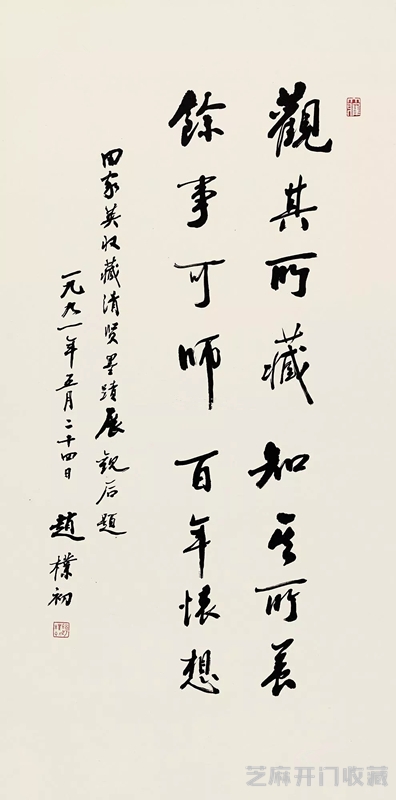 觀其所藏知其所養
餘事可師百年懷想
田家英收藏清賢墨蹟展觀后題
一九九一年五月二十四日
趙樸初
芝麻开门收藏